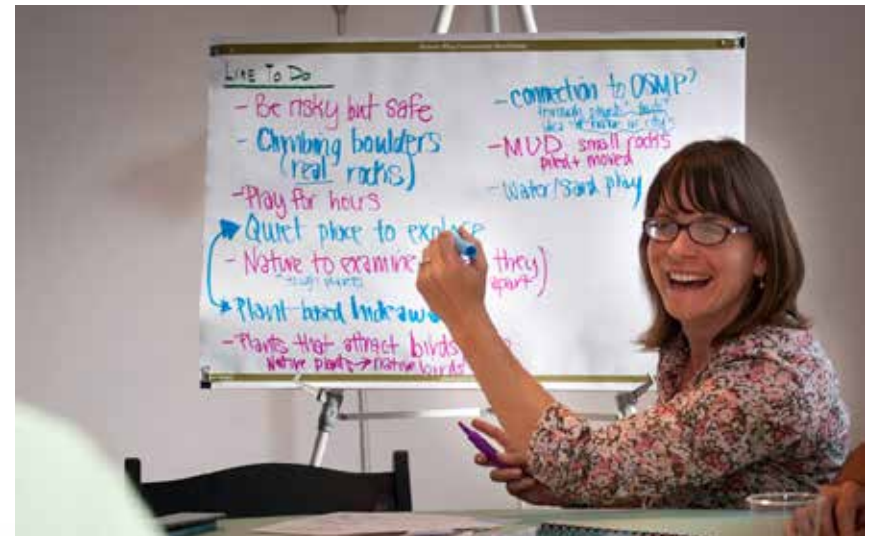 LIKE TO DO
- Be risky but safe
- Climbing boulders
(real rocks)
- Play for hours
Quiet place to explore
- Nature to examine they
apart)
Plant-based hideaw
- Plants that attract birds
Native plants → native birds
- connection to OSMP?
through
- MUD small rocks
piled + moved
- Water/Sand play